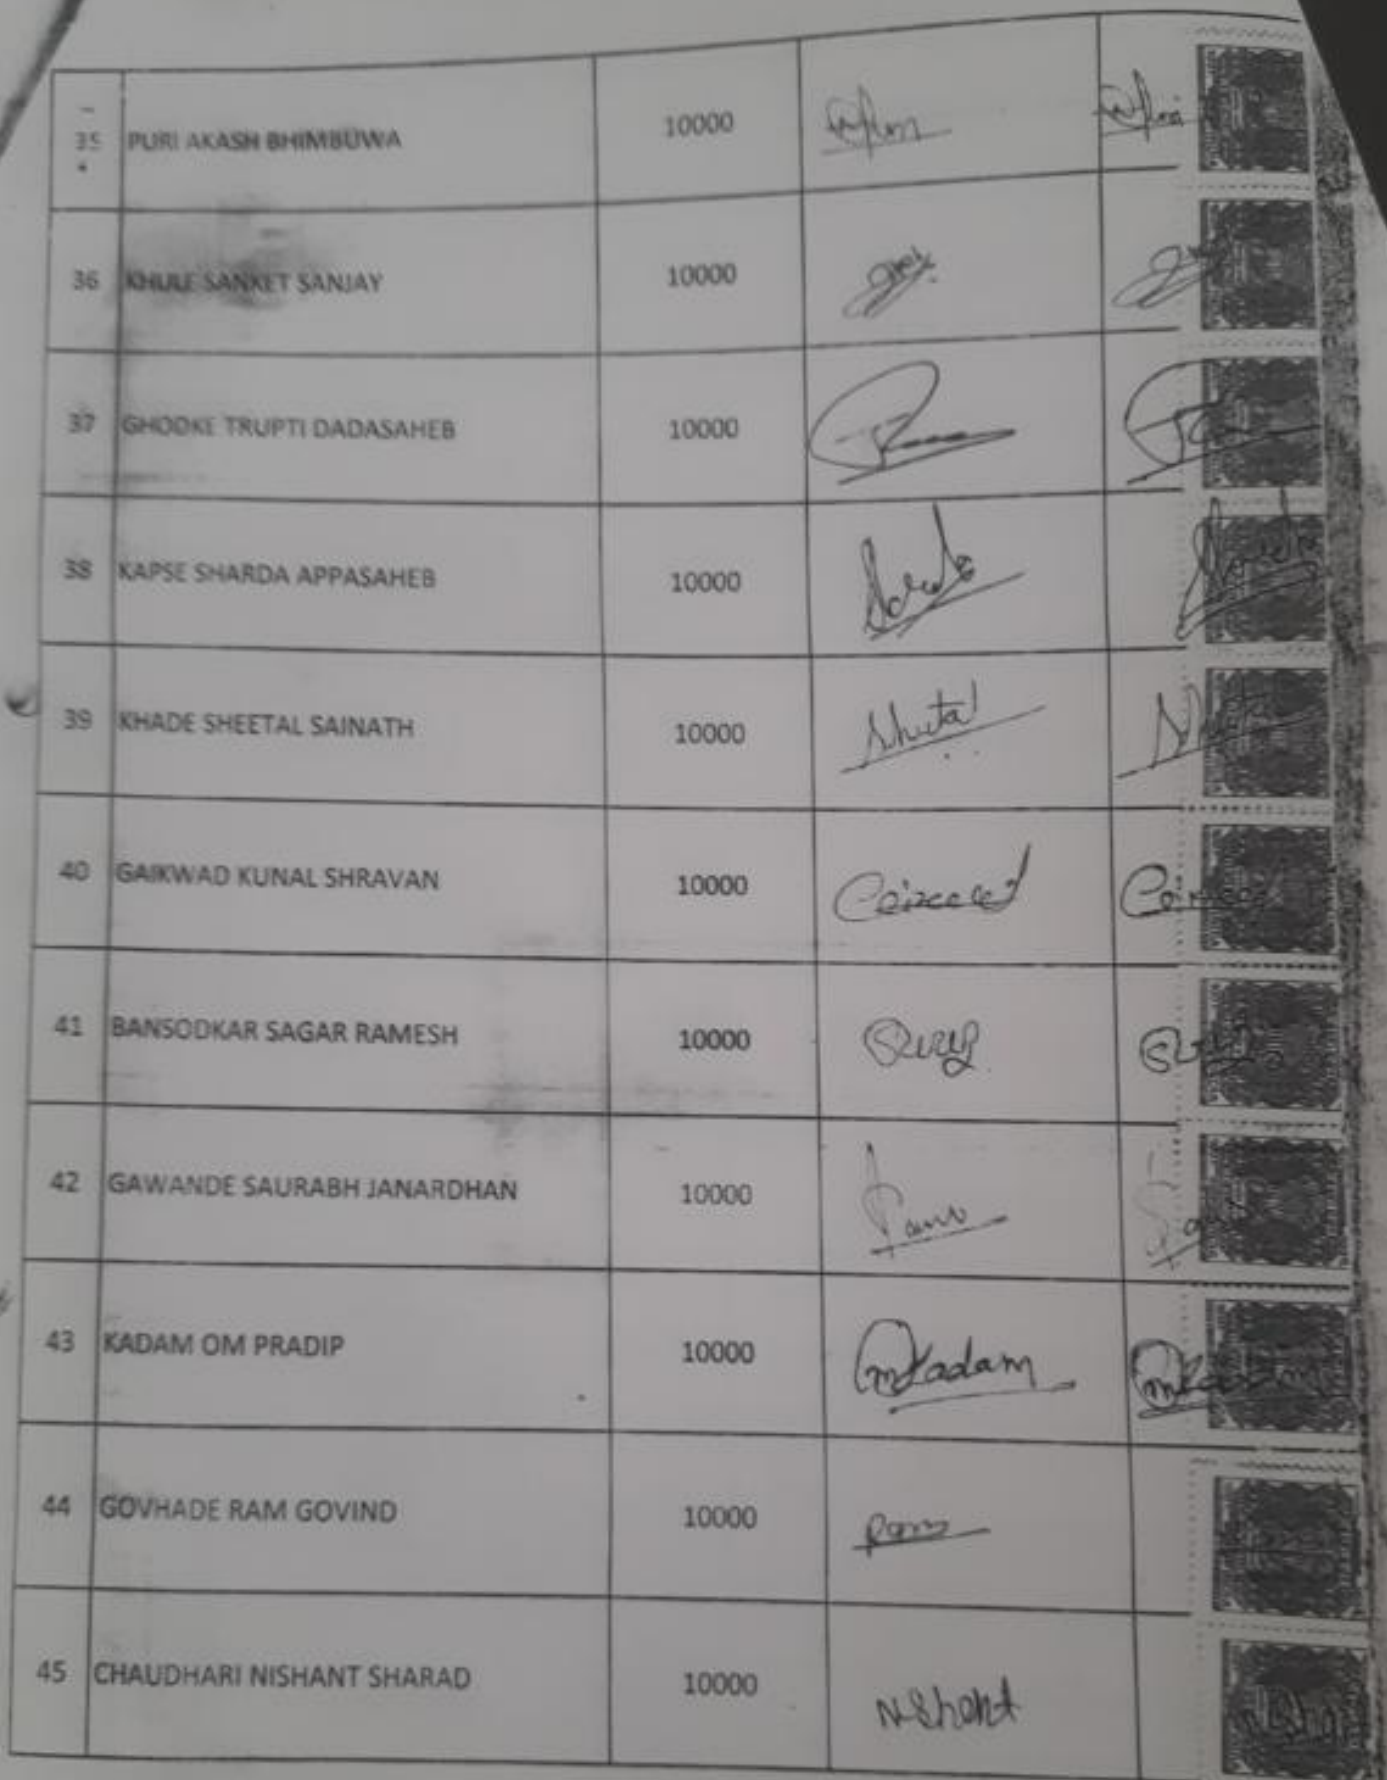 35 PURI AKASH BHIMBUWA 10000
36 KHULE SANKET SANJAY 10000
37 GHODKE TRUPTI DADASAHEB 10000
38 KAPSE SHARDA APPASAHEB 10000
39 KHADE SHEETAL SAINATH 10000 Sheetal
40 GAIKWAD KUNAL SHRAVAN 10000
41 BANSODKAR SAGAR RAMESH 10000
42 GAWANDE SAURABH JANARDHAN 10000
43 KADAM OM PRADIP 10000 OmKadam
44 GOVHADE RAM GOVIND 10000
45 CHAUDHARI NISHANT SHARAD 10000